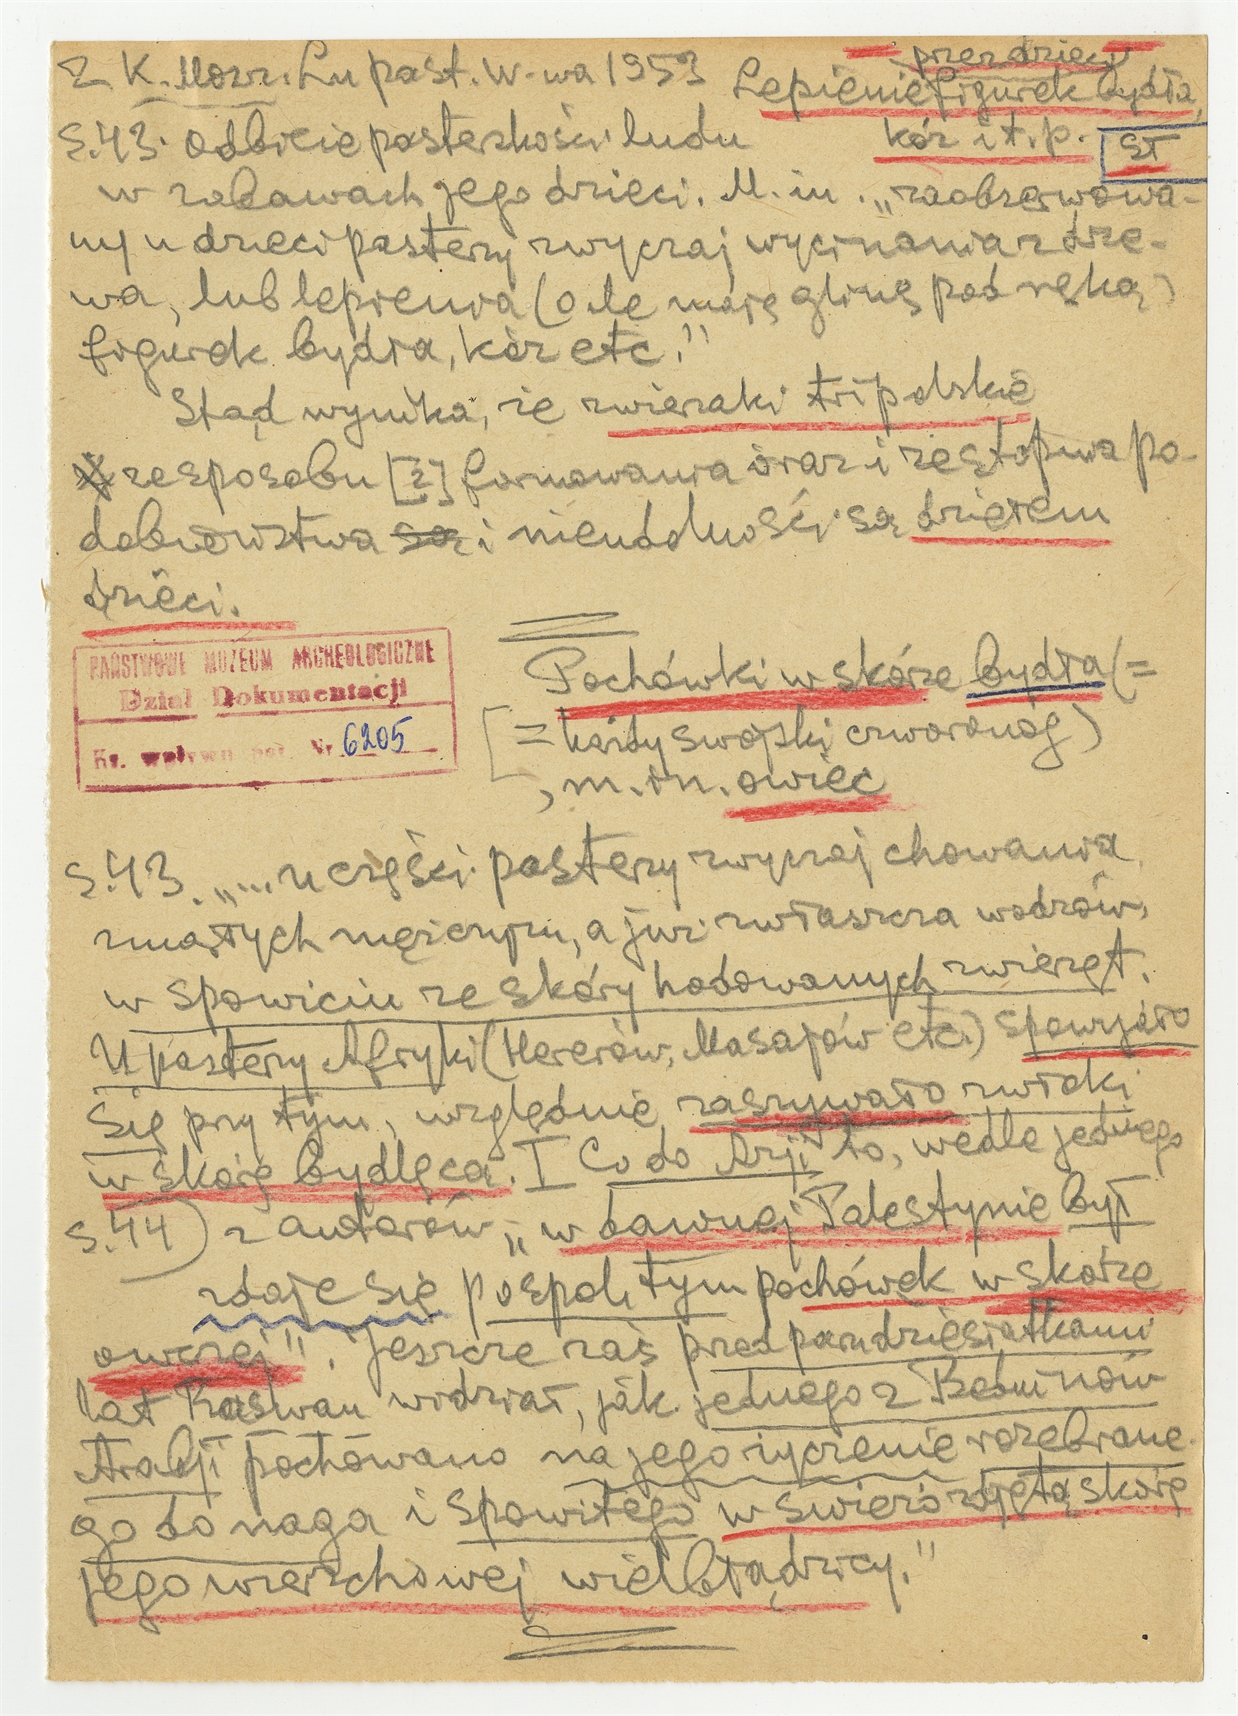 Z K. Mosz. Lu past. W-wa 1953
przez dzieci
Lepienie figurek bydła,
kóz i t. p.
ST
S. 43. Odbicie pasterskości ludu
w zabawach jego dzieci. M. in. „zaobserwowa-
ny u dzieci pasterzy zwyczaj wycinania z drze-
wa, lub lepienia (o ile mają glinę pod ręką)
figurek bydła, kóz etc."
Stąd wynika, że zwierzaki tripolskie
ze sposobu [2] formowania oraz i ze stopnia po-
dobieństwa są i nieudolności są dziełem
dzieci.
PAŃSTWOWE MUZEUM ARCHEOLOGICZNE
Dział Dokumentacji
Ks. wpływu Nr 6205
Pochówki w skórze bydła (=
[= każdy swojski czworonóg)
, m. in. owiec
s. 43. „... u części pasterzy zwyczaj chowania
zmarłych mężczyzn, a już zwłaszcza wodzów,
w spowiciu ze skóry hodowanych zwierząt.
U pasterzy Afryki (Hererów, Masajów etc.) spowijało
się przy tym, względnie zaszywało zwłoki
w skórę bydlęcą. I Co do Azji to, wedle jednego
s. 44) z autorów „w dawnej Palestynie był
zdaje się pospolitym pochówek w skórze
owczej". Jeszcze zaś przed paru dziesiątkami
lat Raswan widział, jak jednego z Beduinów
Arabji pochowano na jego życzenie rozebrane-
go do naga i spowitego w świeżo zdjętą skórę
jego wierzchowej wielbłądzicy."